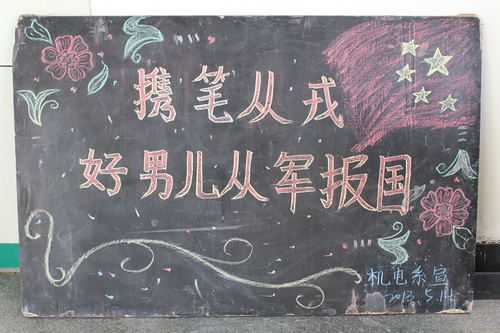 携笔从戎
好男儿从军报国
机电系宣
2013.5.14